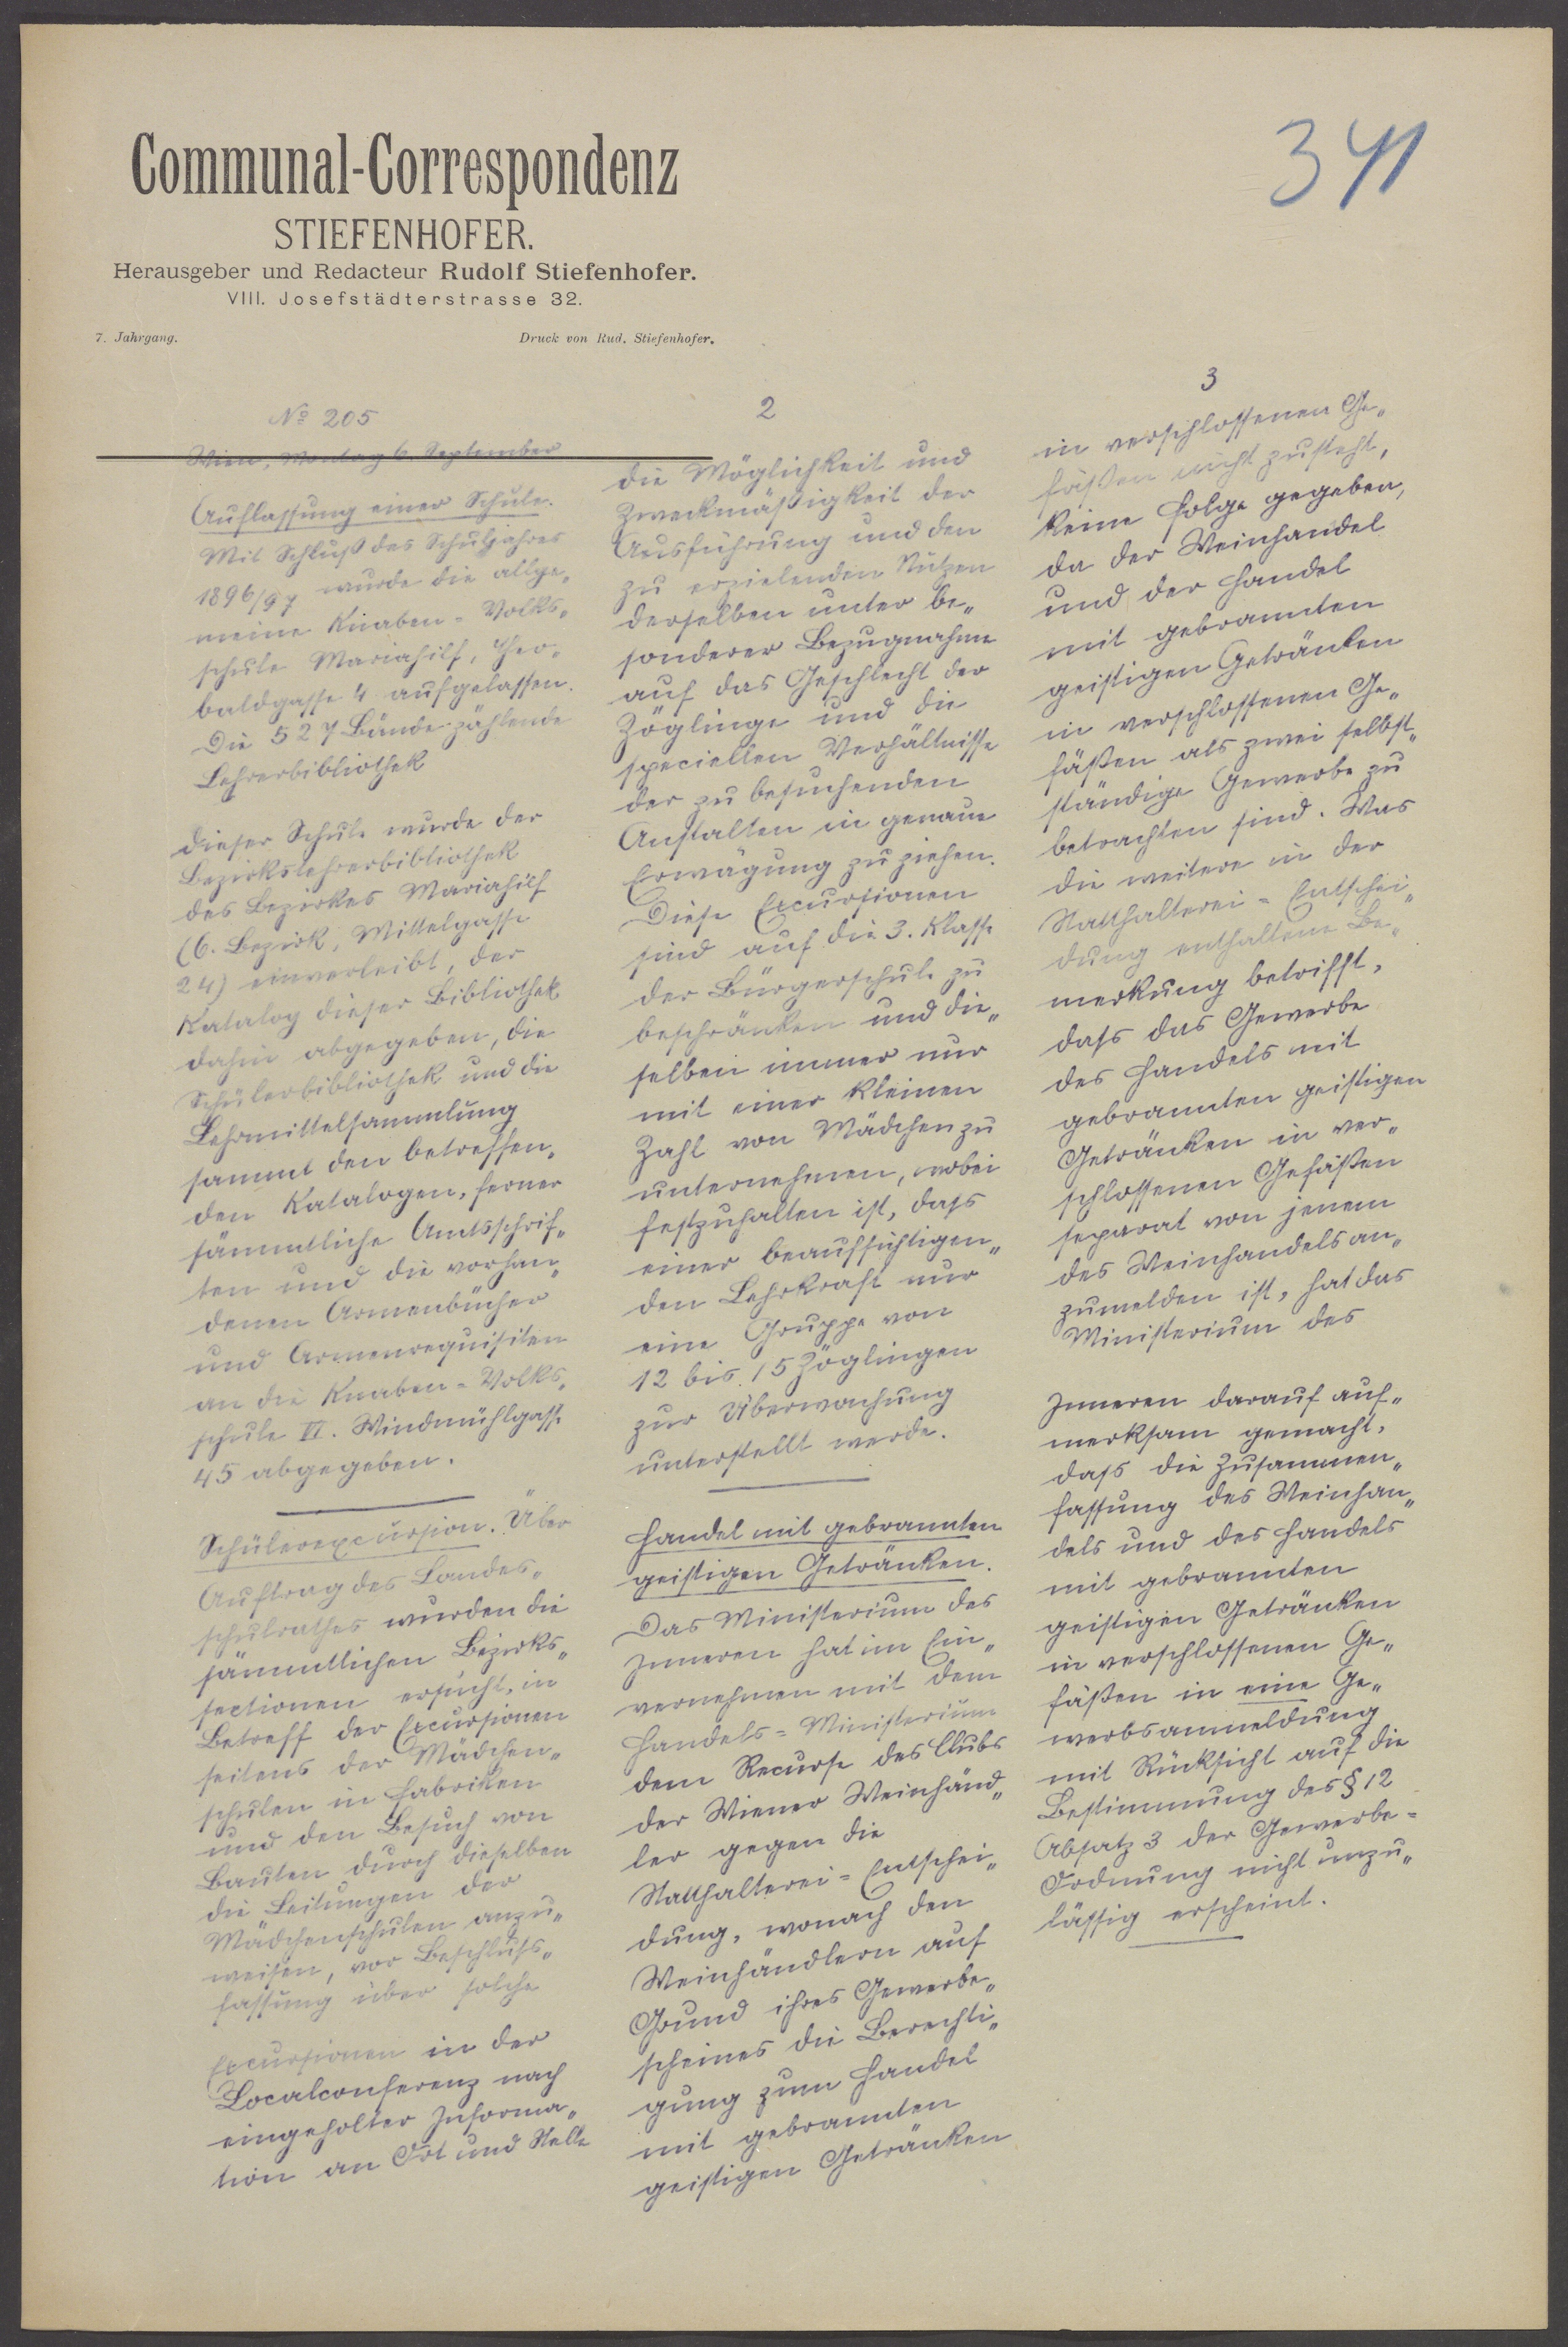 Communal-Correspondenz
STIEFENHOFER.
Herausgeber und Redacteur Rudolf Stiefenhofer.
VIII. Josefstädterstrasse 32.
7. Jahrgang. Druck von Rud. Stiefenhofer.
341
No 205
Wien, Montag 6. September
Auflassung einer Schule.
Mit Schluß des Schuljahres
1896/97 wurde die allge„
meine Knaben-Volks„
schule Mariahilf, Theo-
baldgasse 4 aufgelassen.
Die 527 Bände zählende
Lehrerbibliothek
dieser Schule wurde der
Bezirkslehrerbibliothek
des Bezirkes Mariahilf
(6. Bezirk, Mittelgasse
24) einverleibt, der
Katalog dieser Bibliothek
dahin abgegeben, die
Schülerbibliothek und die
Lehrmittelsammlung
sammt den betreffen„
den Katalogen, ferner
sämmtliche Amtsschrif„
ten und die vorhan„
denen Armenbücher
und Armenrequisiten
an die Knaben-Volks„
schule VI. Windmühlgasse
45 abgegeben.
Schülerexcursion. Über
Auftrag des Landes„
schulrathes wurden die
sämmtlichen Bezirks„
sectionen ersucht, in
Betreff der Excursionen
seitens der Mädchen„
schulen in Fabriken
und den Besuch von
Bauten durch dieselben
die Leitungen der
Mädchenschulen anzu„
weisen, vor Beschluss„
fassung über solche
Excursionen in der
Localconferenz nach
eingeholter Informa„
tion an Ort und Stelle
2
die Möglichkeit und
Zweckmäßigkeit der
Ausführung und den
zu erzielenden Nutzen
derselben unter be„
sonderer Bezugnahme
auf das Geschlecht der
Zöglinge und die
speciellen Verhältnisse
der zu besuchenden
Anstalten in genaue
Erwägung zu ziehen.
Diese Excursionen
sind auf die 3. Klasse
der Bürgerschule zu
beschränken und die„
selben immer nur
mit einer kleinen
Zahl von Mädchen zu
unternehmen, wobei
festzuhalten ist, dass
einer beaufsichtigen„
den Lehrkraft nur
eine Gruppe von
12 bis 15 Zöglingen
zur Überwachung
unterstellt werde.
Handel mit gebrannten
geistigen Getränken.
Das Ministerium des
Inneren hat im Ein„
vernehmen mit dem
Handels-Ministerium
dem Recurse des Clubs
der Wiener Weinhänd„
ler gegen die
Statthalterei-Entschei„
dung, wonach den
Weinhändlern auf
Grund ihres Gewerbe„
scheines die Berechti„
gung zum Handel
mit gebrannten
geistigen Getränken
3
in verschlossenen Ge„
fäßen nicht zusteht,
keine Folge gegeben,
da der Weinhandel
und der Handel
mit gebrannten
geistigen Getränken
in verschlossenen Ge„
fäßen als zwei selbst„
ständige Gewerbe zu
betrachten sind. Was
die weitere in der
Statthalterei-Entschei„
dung enthaltene Be„
merkung betrifft,
dass das Gewerbe
des Handels mit
gebrannten geistigen
Getränken in ver„
schlossenen Gefäßen
separat von jenem
des Weinhandels an„
zumelden ist, hat das
Ministerium des
Inneren darauf auf„
merksam gemacht,
dass die Zusammen„
fassung des Weinhan„
dels und des Handels
mit gebrannten
geistigen Getränken
in verschlossenen Ge„
fäßen in eine Ge„
werbsanmeldung
mit Rücksicht auf die
Bestimmung des § 12
Absatz 3 der Gewerbe-
Ordnung nicht unzu„
lässig erscheint.